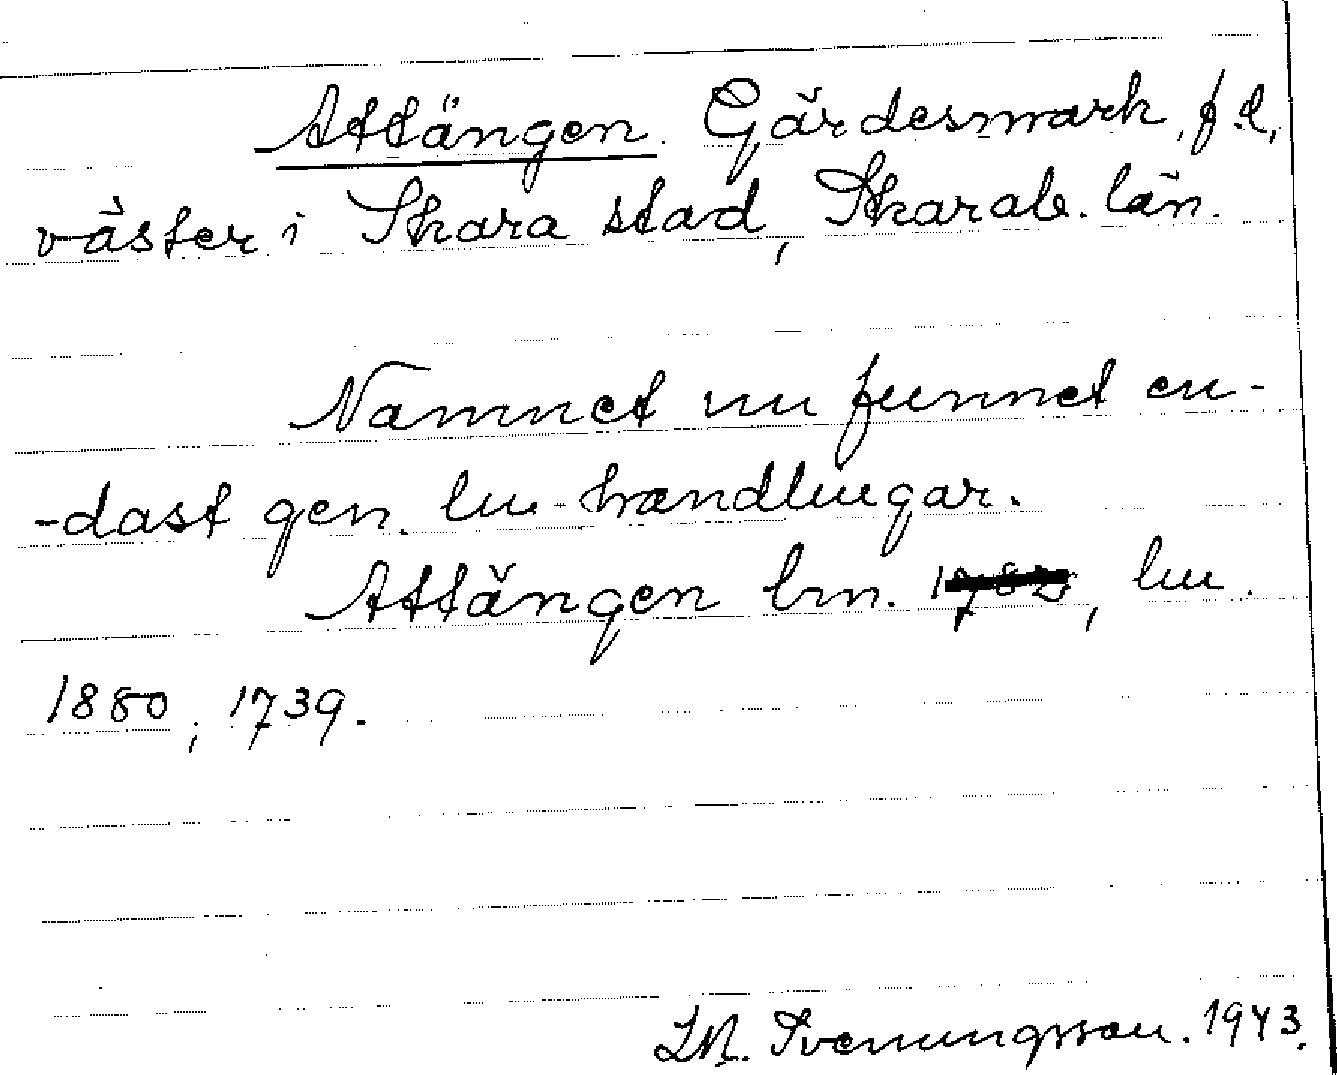 Attängen. Gärdesmark, f.d.,
väster i Skara stad, Skarab. län.
Namnet nu funnet en-
-dast gen. lm-handlingar.
Attängen lm. 1782, lm.
1880; 1739.
Svenningsson. 1943.